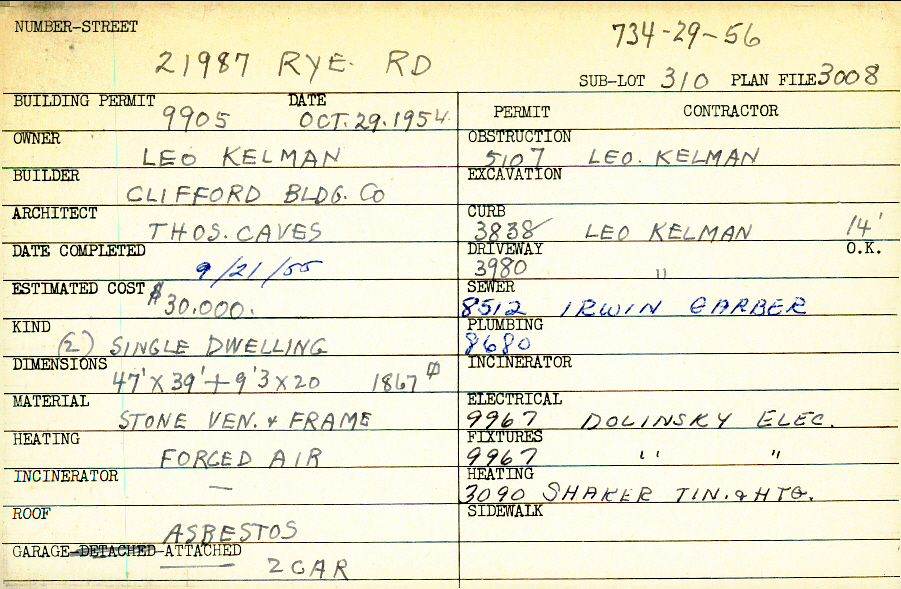 NUMBER-STREET
734-29-56
21987 RYE RD
SUB-LOT 310 PLAN FILE 3008
BUILDING PERMIT DATE
9905 OCT. 29. 1954
PERMIT CONTRACTOR
OWNER
LEO KELMAN
OBSTRUCTION
5107 LEO. KELMAN
BUILDER
CLIFFORD BLDG. CO
EXCAVATION
ARCHITECT
THOS. CAVES
CURB
3838 LEO KELMAN 14'
DATE COMPLETED
9/21/55
DRIVEWAY O.K.
3980 "
ESTIMATED COST $30.000.
SEWER
8512 IRWIN GARBER
KIND
(2) SINGLE DWELLING
PLUMBING
8680
DIMENSIONS
47' X 39' + 9'3 X 20 1867
INCINERATOR
MATERIAL
STONE VEN. & FRAME
ELECTRICAL
9967 DOLINSKY ELEC.
HEATING
FORCED AIR
FIXTURES
9967 " "
INCINERATOR
—
HEATING
3090 SHAKER TIN. & HTG.
ROOF
ASBESTOS
SIDEWALK
GARAGE-DETACHED-ATTACHED
2 CAR